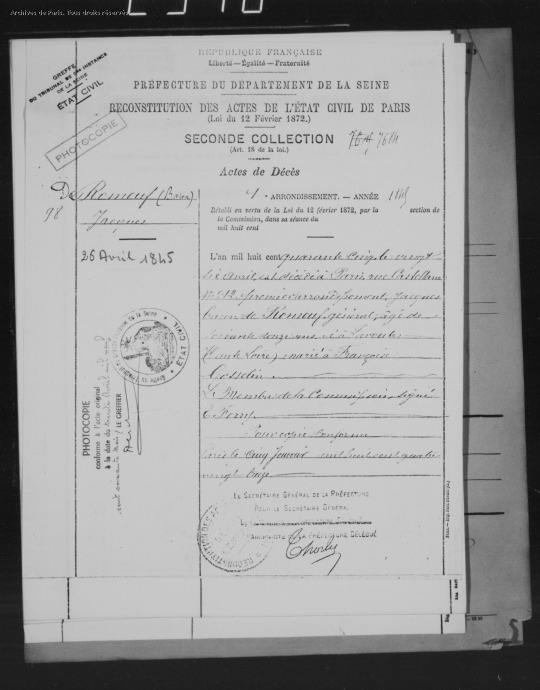 Archives de Paris. Tous droits réservés
GREFFE
DU TRIBUNAL DE 1re INSTANCE
DE LA SEINE
ÉTAT CIVIL
PHOTOCOPIE
RÉPUBLIQUE FRANÇAISE
Liberté — Égalité — Fraternité
PRÉFECTURE DU DÉPARTEMENT DE LA SEINE
RECONSTITUTION DES ACTES DE L'ÉTAT CIVIL DE PARIS
(Loi du 12 Février 1872.)
SECONDE COLLECTION
(Art. 18 de la loi.)
Actes de Décès
De Romeuf (Baron)
Jacques
98
26 Avril 1845
1er ARRONDISSEMENT. — ANNÉE 1845
Rétabli en vertu de la Loi du 12 février 1872, par la section de
la Commission, dans sa séance du
mil huit cent
L'an mil huit cent quarante cinq le vingt
six avril, est décédé à Paris, rue Castellane
No 12, premier arrondissement, Jacques
baron de Romeuf, général, âgé de
soixante douze ans, né à Lavoute
(Haute Loire) marié à Françoise
Gosselin
Le Membre de la Commission, signé
Pour copie conforme
Paris le Cinq Janvier mil huit cent quatre
vingt onze
PHOTOCOPIE
conforme à l'acte original
à la date du
LE GREFFIER
ÉTAT CIVIL
LE SECRÉTAIRE GÉNÉRAL DE LA PRÉFECTURE
POUR LE SECRÉTAIRE GÉNÉRAL
DE LA PRÉFECTURE DÉLÉGUÉ